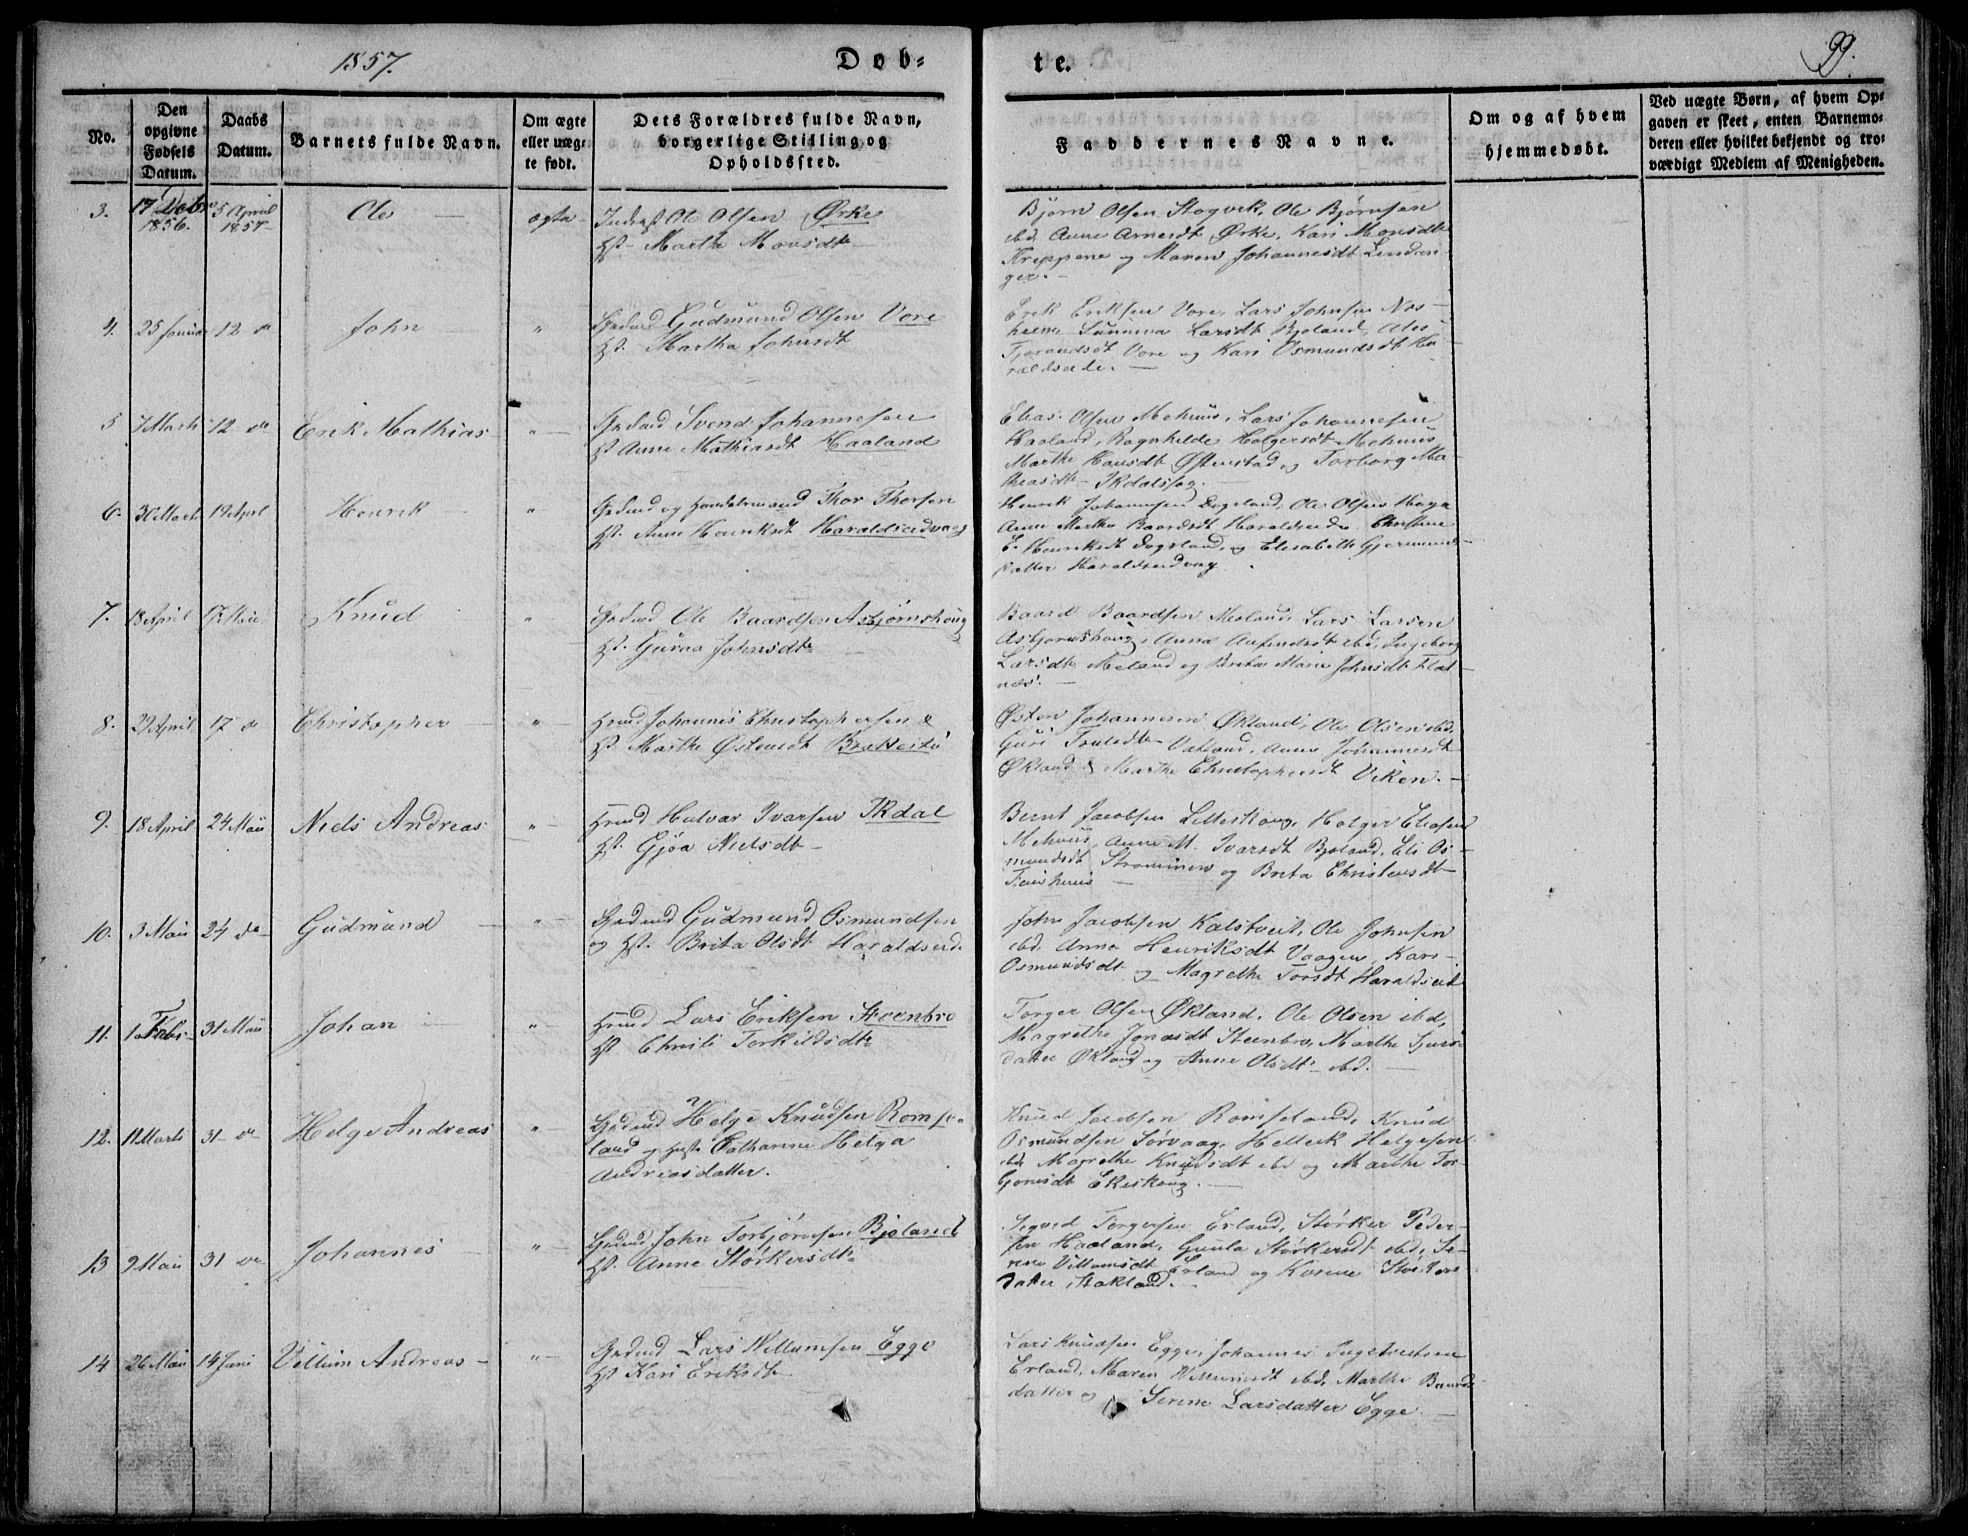 1857.
Døb-
te.
99.
No.
Den
opgivne
Fødsels
Datum.
Daabs
Datum.
Barnets fulde Navn.
Om ægte
eller uæg-
te født.
Dets Forældres fulde Navn,
borgerlige Stilling og
Opholdssted.
Faddernes Navne.
Om og af hvem
hjemmedøbt.
Ved uægte Børn, af hvem Op-
gaven er skeet, enten Barnemo-
deren eller hvilket bekjendt og tro-
værdigt Medlem af Menigheden.
3.
17 Debr
1856.
5 April
1857
Ole
ægte
Ole Olsen Ørke
Hst. Marthe Monsdtr
Bjørn Olsen Stogvik, Ole Bjørnsen
ibd. Anne Arnesdt Ørke, Kari Monsdtr
Kreppene og Maren Johannesdt Lindan-
ger.
4.
25 Januar
12 do
John
"
Grdmd Gudmund Olsen Vore
Hst. Martha Johnsdt
Erik Eriksen Vore, Lars Johnsen Nes-
heim Sunniva Larsdt Bjoland, Ales
Tjerandsdt Vore og Kari Osmundsdt Ha-
raldseide.
5
7 Marts
12 do
Erik Mathias
"
Grdmd Svend Johannesen
Hst Anne Mathiasdt Haaland
Elias Olsen Mehuus, Lars Johannesen
Haaland, Ragnhilde Holgersdt Mehuus
Marthe Hansdt Østenstad og Torborg Ma-
thiasdt
6.
30 Marts
19 April
Henrik
"
Grdmd og Handelsmand Thor Thorsen
Hst. Anne Henriksdt Haraldseidvaag
Henrik Johannesen Dogsland, Ole Olsen Hage
Anne Marthe Baardsdt Haraldseide Christine
E. Henriksdt Dogsland, og Elisabeth Gjermunds-
datter Haraldseidvaag
7.
18 April
17 Mai
Knud
"
Grdmd Ole Baardsen Asbjørnshoug
Hst. Guroe Johnsdtr
Baard Baardsen Meland, Lars Larsen
Asbjørnshoug, Anna Anfindsdt ibd, Ingeborg
Larsdtr Meland og Brita Marie Johnsdt Flat-
næs.
8.
29 April
17 do
Christopher
"
Hmd Johannis Christophersen
Hst. Marthe Østensdt Brattestø
Østen Johannesen Økland, Ole Olsen ibd.
Guri Trulsdtr Vatland, Anne Johannesdt
Økland & Marthe Christophersdt Viken.
9.
18 April
24 Mai
Niels Andreas
"
Hmd Halvar Ivarsen Ikdal
Hst. Gjøa Nielsdt
Bernt Jacobsen Lilleskoug, Holger Eliasen
Mehuus, Anne M. Ivarsdt Bjoland, Eli Os-
mundsdt Strømmen og Brita Christensdt
10.
3 Mai
24 do
Gudmund
"
Grdmd Gudmund Osmundsen
og Hst. Brita Olsdt Haraldseid.
John Jacobsen Kalstveit, Ole Johnsen
ibd. Anne Henriksdt Vaagen, Kari
Osmundsdt og Magrethe Torsdt Haraldseid
11.
1 Febr
31 Mai
Johan
"
Hmd Lars Eriksen Steenbro
Hst Christi Torkildsdtr
Torger Olsen Økland, Ole Olsen ibd,
Magrethe Jonasdt Steenbro, Marthe Sjurs-
datter Økland og Anne Olsdt ibd.
12.
11 Marts
31 do
Helge Andreas
"
Grdmd Helge Knudsen Romse-
land og Hst. Cathrine Helga
Andreasdatter.
Knud Jacobsen Romseland, Knud
Osmundsen Sørvaag, Helleik Helgesen
ibd Magrethe Knudsdt ibd og Marthe Tor-
gjersdt Ekeskoug.
13
9 Mai
31 do
Johannes
"
Grdmd John Torbjørnsen Bjoland
Hst. Anne Størkersdtr
Sigvard Torgersen Erland, Størker Peder-
sen Haaland, Gunla Størkersdt ibd, Se-
rine Villumsdt Erland og Karine Størkers
datter Stakland.
14
26 Mai
14 Juni
Villum Andreas
"
Grdmd Lars Willumsen Egge
Hst Kari Eriksdtr
Lars Knudsen Egge, Johannes Ingebretsen
Erland, Maren Willumsdt ibd, Marthe Baards
datter og Serine Larsdatter Egge.